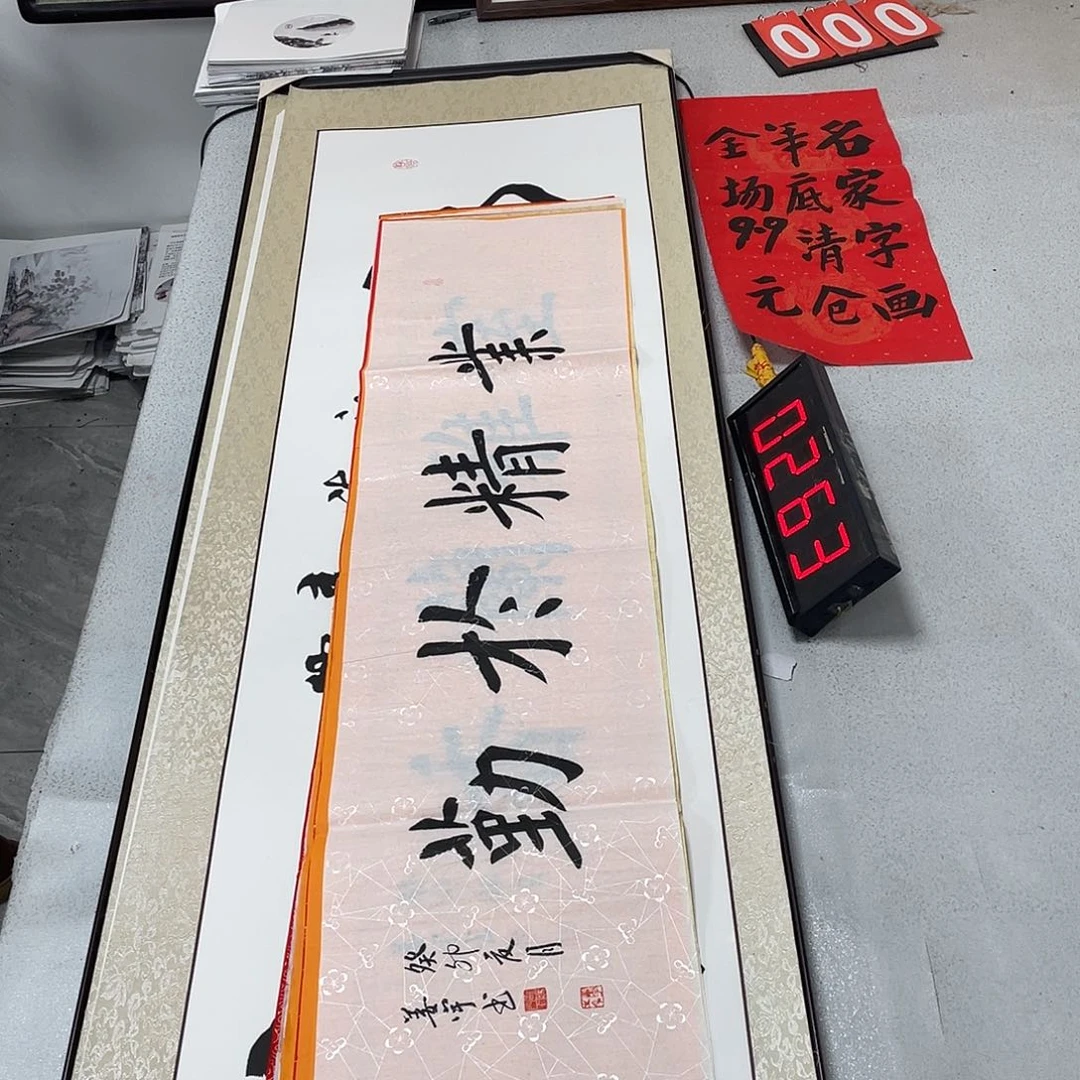 000
名家字画
年底清仓
全场9.9元
0263
業精於勤
癸卯夏月